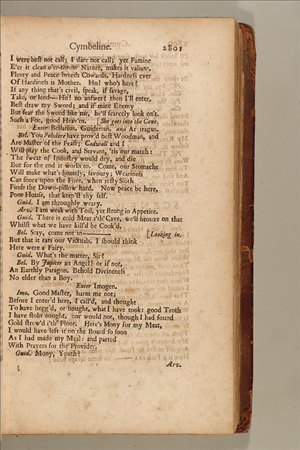 Cymbeline. 2801
I were best not call; I dare not call; yet Famine
E'er it clean o'er-throw Nature, makes it valiant.
Plenty and Peace breeds Cowards, Hardness ever
Of Hardiness is Mother. Ho! who's here?
If any thing that's civil, speak, if savage,
Take, or lend—Ho! no answer? then I'll enter.
Best draw my Sword; and if mine Enemy
But fear the Sword like me, he'll scarcely look on't.
Such a Foe, good Heav'n. [She goes into the Cave.
Enter Bellarius, Guiderius, and Arviragus.
Bel. You Paladour have prov'd best Woodman, and
Are Master of the Feast; Cadwall and I
Will play the Cook, and Servant, 'tis our match:
The sweat of Industry would dry, and die
But for the end it works to. Come, our Stomachs
Will make what's homely, savoury; Weariness
Can snore upon the Flint, when resty Sloth
Finds the Down-pillow hard. Now peace be here,
Poor House, that keep'st thy self.
Guid. I am throughly weary.
Arv. I am weak with Toil, yet strong in Appetite.
Guid. There is cold Meat i'th' Cave, we'll brouze on that
Whilst what we have kill'd be Cook'd.
Bel. Stay, come not in— [Looking in.
But that it eats our Victuals, I should think
Here were a Fairy.
Guid. What's the matter, Sir?
Bel. By Jupiter an Angel! or if not,
An Earthly Paragon. Behold Divineness
No elder than a Boy.
Enter Imogen.
Imo. Good Master, harm me not;
Before I enter'd here, I call'd, and thought
To have begg'd, or bought, what I have took: good Troth
I have stoln nought, nor would not, though I had found
Gold strew'd i'th' Floor. Here's Mony for my Meat,
I would have left it on the Board so soon
As I had made my Meal; and parted
With Prayers for the Provider.
Guid. Mony, Youth?
Arv.